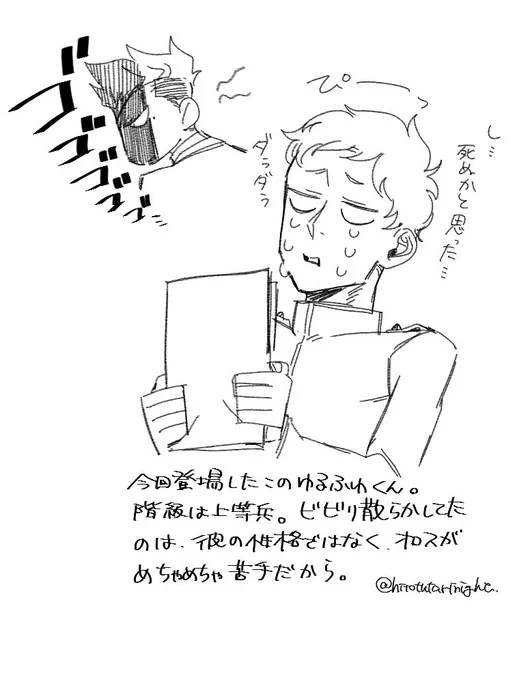 ゴゴゴゴゴゴ…
ぴ〜
ダラダラ
し…
死ぬかと思った…
今回登場したこのゆるふわくん。
階級は上等兵。ビビり散らかしてた
のは、彼の性格ではなく、オロスが
めちゃめちゃ苦手だから。